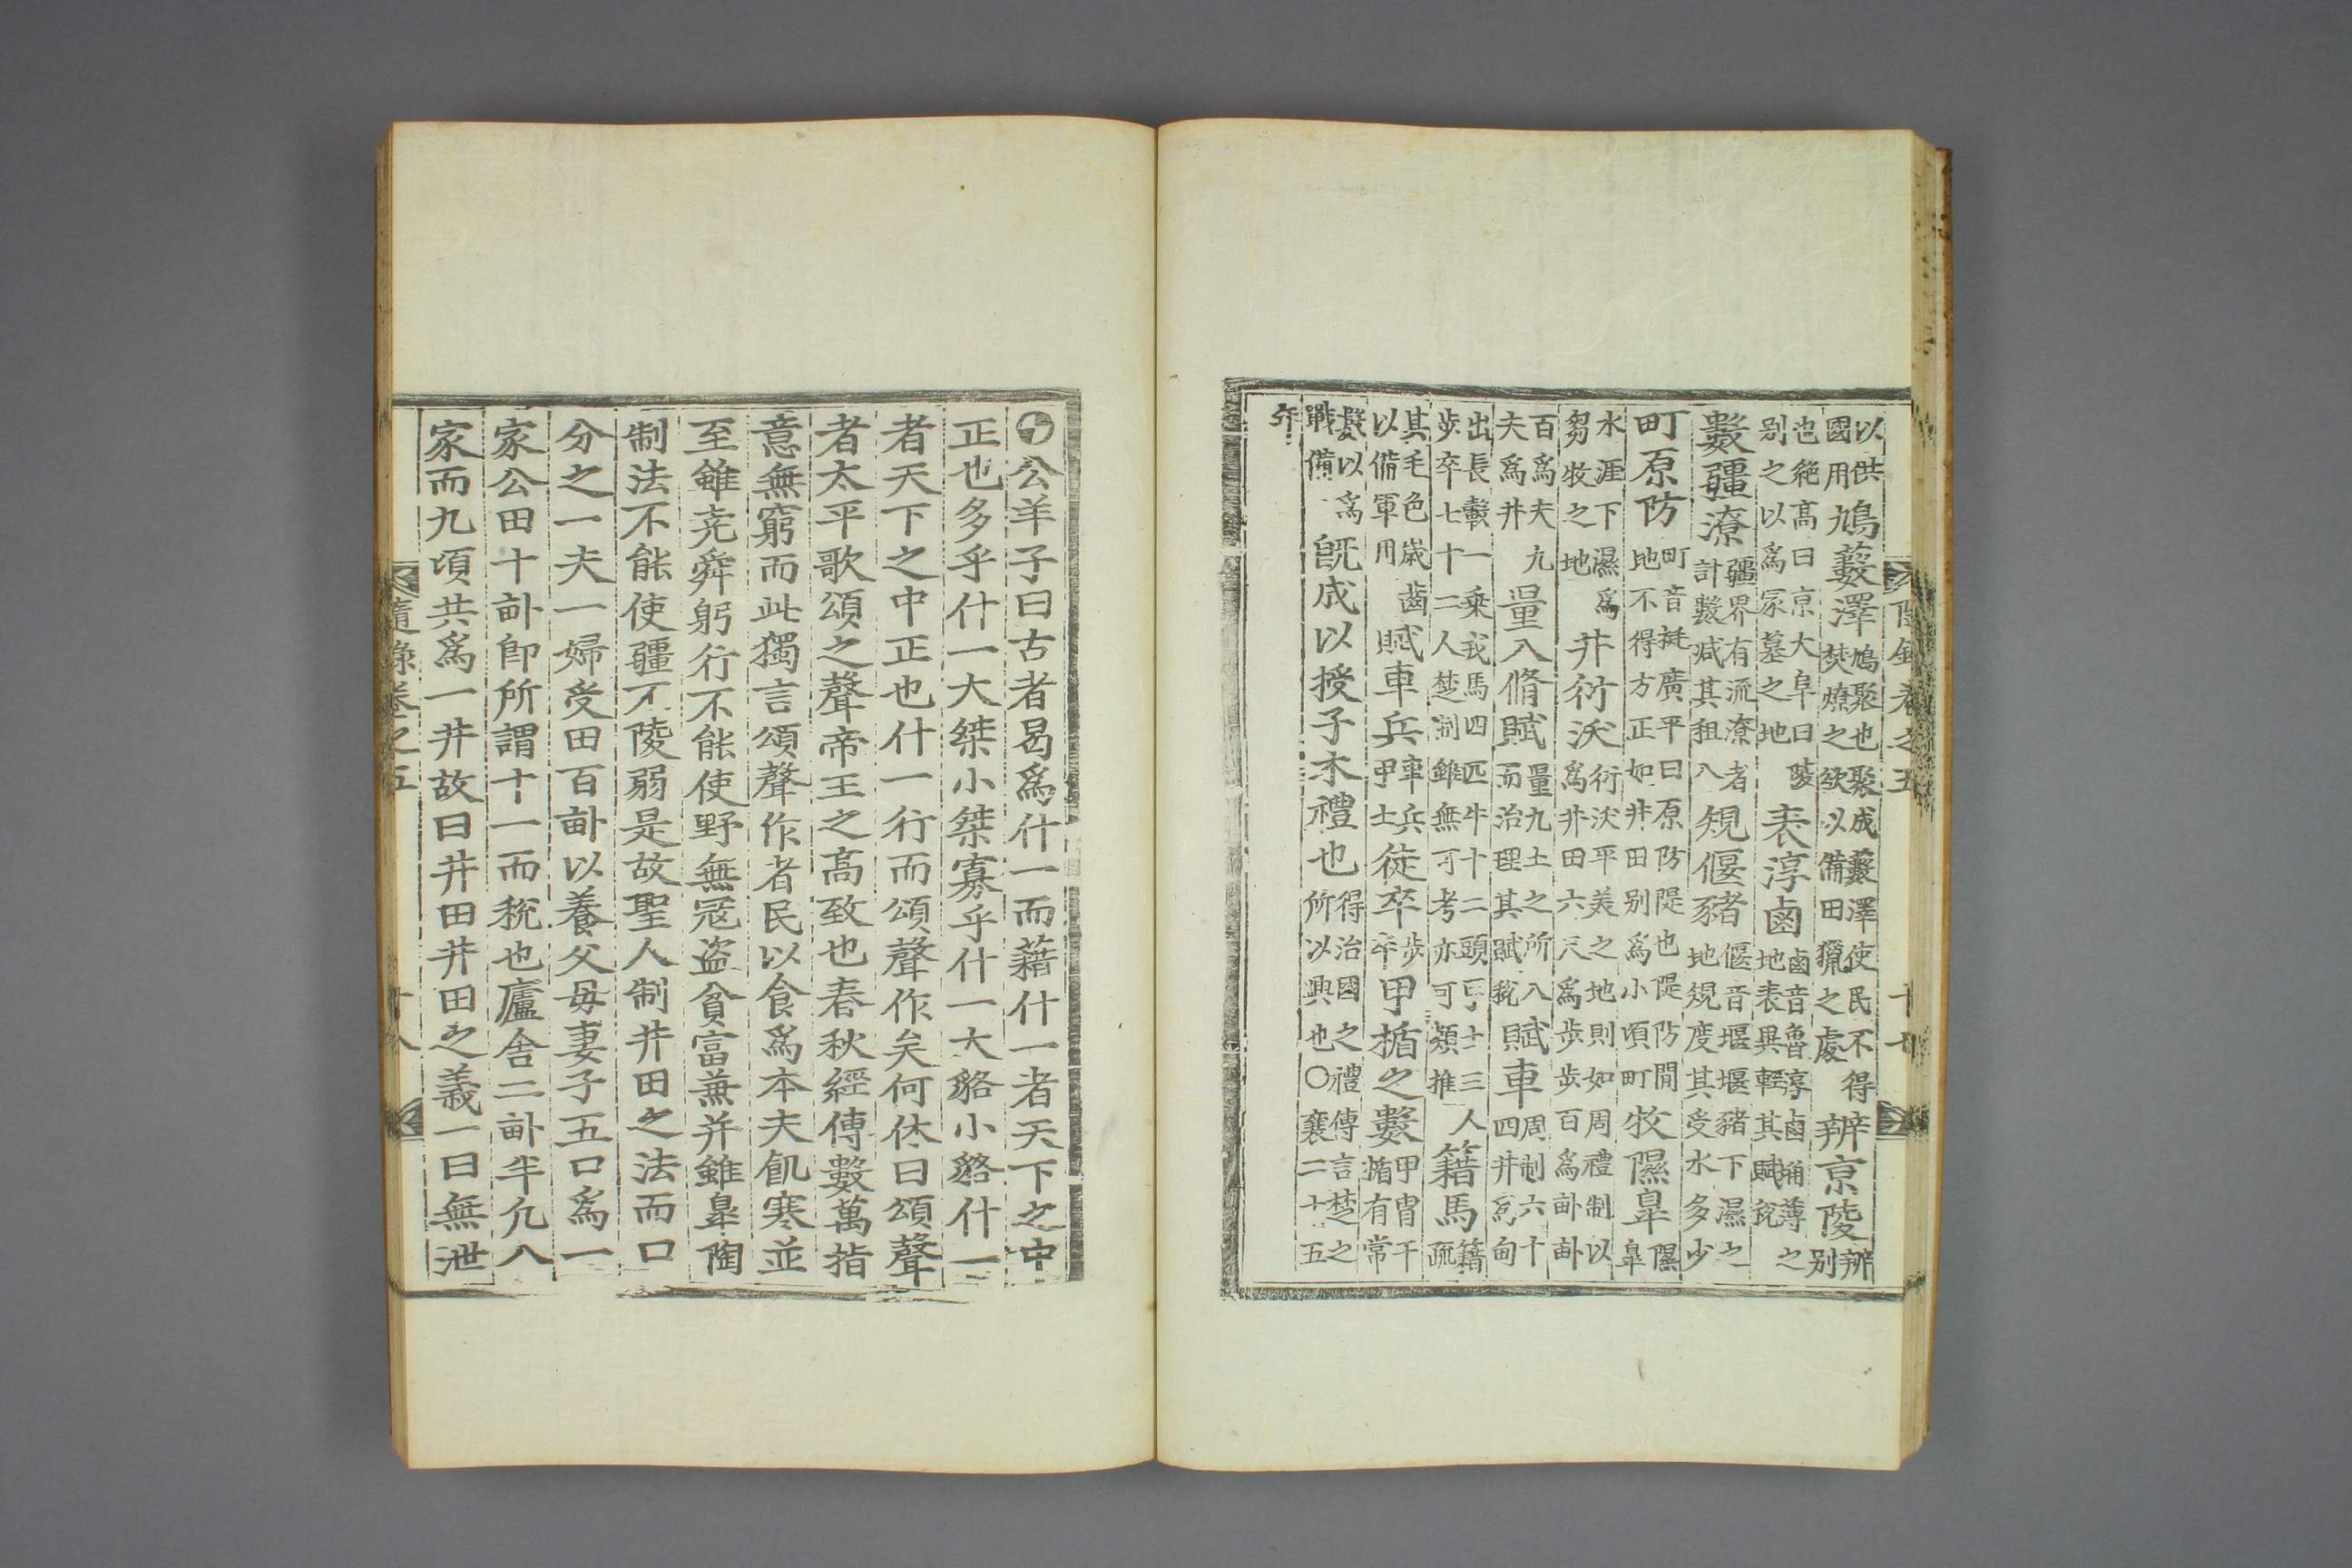 隨錄卷之五 十七
以供國用鳩藪澤鳩聚也聚成藪澤使民不得焚燎之欲以備田獵之處辨京陵辨别
也絶高曰京大阜曰陵别之以爲冢墓之地表淳鹵鹵音魯淳鹵埆薄之地表異輕其賦稅
數疆潦疆界有流潦者計數减其租入規偃豬偃音堰堰豬下濕之地規度其受水多少
町原防町音挺廣平曰原防隄也隄防閒地不得方正如井田别爲小頃町牧隰皐隰皐
水涯下濕爲芻牧之地井衍沃衍沃平美之地則如周禮制以爲井田六尺爲步步百爲畝畝
百爲夫九夫爲井量入脩賦量九土之所入而治理其賦稅賦車周制六十四井爲甸
出長轂一乗戎馬四匹牛十二頭甲士三人步卒七十二人楚制雖無可考亦可類推籍馬籍疏
其毛色歲齒以備軍用賦車兵車兵甲士徒卒步卒甲楯之數甲冑干楯有常
數以爲戰備旣成以授子木禮也得治國之禮傳言楚之所以興也○襄二十五
年
公羊子曰古者曷爲什一而藉什一者天下之中
正也多乎什一大桀小桀寡乎什一大貉小貉什一
者天下之中正也什一行而頌聲作矣何休曰頌聲
者太平歌頌之聲帝王之高致也春秋經傳數萬指
意無窮而此獨言頌聲作者民以食爲本夫飢寒並
至雖尭舜躬行不能使野無冦盗貧富兼并雖臯陶
制法不能使疆不陵弱是故聖人制井田之法而口
分之一夫一婦受田百畝以養父母妻子五口爲一
家公田十畝卽所謂十一而稅也廬舍二畝半凡八
家而九頃共爲一井故曰井田井田之義一曰無泄
隨錄卷之五 十八